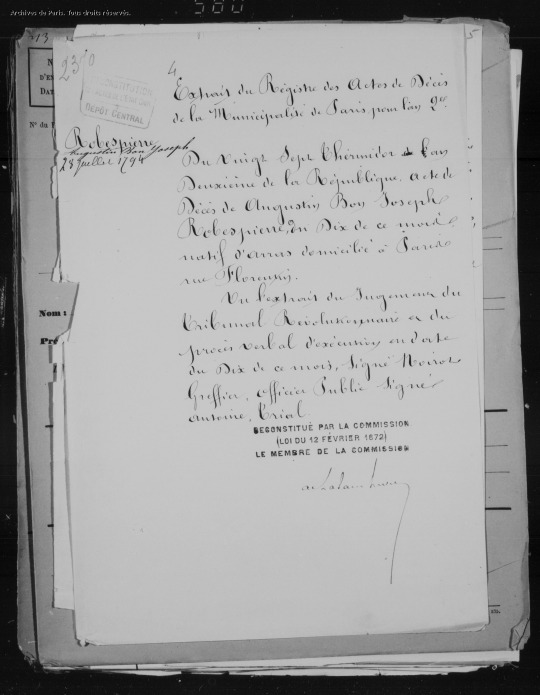 Archives de Paris. Tous droits réservés.
13
2350
4
5
DÉPÔT CENTRAL
N° du
Extrait du Régistre des Actes de Décès
de la Municipalité de Paris pour l'an 2e
Robespierre
Augustin Bon Joseph
28 juillet 1794
Du Vingt Sept Thermidor l'an
Deuxième de la République. acte de
Décès de Augustin Bon Joseph
Robespierre, du Dix de ce mois
natif d'arras domicilié à Paris
rue Florentin.
Vu l'extrait du Jugement du
Tribunal Révolutionnaire et du
procès verbal d'exécution en date
du Dix de ce mois, Signé Neirot
Greffier, officier Public Signé
Antoine, Trial.
Nom :
Pré
RECONSTITUÉ PAR LA COMMISSION
(LOI DU 12 FÉVRIER 1872)
LE MEMBRE DE LA COMMISSION